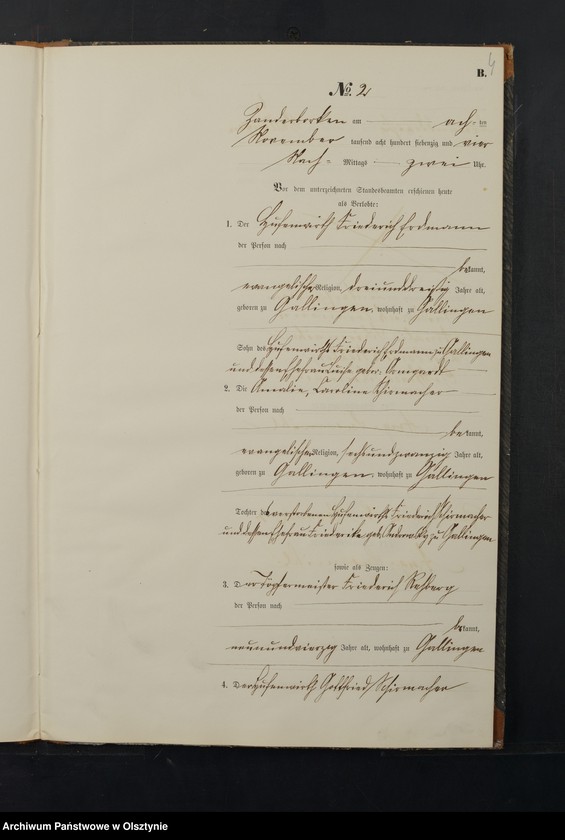 4
B.
No. 2
Zanderborken am ach-ten
November tausend acht hundert siebenzig und vier
Nach- Mittags zwei Uhr.
Vor dem unterzeichneten Standesbeamten erschienen heute
als Verlobte:
1. Der Hufenwirth Friederich Erdmann
der Person nach
bekannt,
evangelischer Religion, dreiunddreißig Jahre alt,
geboren zu Gallingen, wohnhaft zu Gallingen
Sohn des Hufenwirths Friederich Erdmann zu Gallingen
und dessen Ehefrau Luise gebor.
2. Die Amalie, Caroline Schirmacher
der Person nach
bekannt,
evangelischer Religion, sechsundzwanzig Jahre alt,
geboren zu Gallingen, wohnhaft zu Gallingen
Tochter des verstorbenen Hufenwirths Friederich Schirmacher
und dessen Ehefrau Friederike geb. zu Gallingen
sowie als Zeugen:
3. Der Töpfermeister Friederich Rehberg
der Person nach
bekannt,
neunundvierzig Jahre alt, wohnhaft zu Gallingen
4. Der Hufenwirth Gottfried Schirmacher
Archiwum Państwowe w Olsztynie